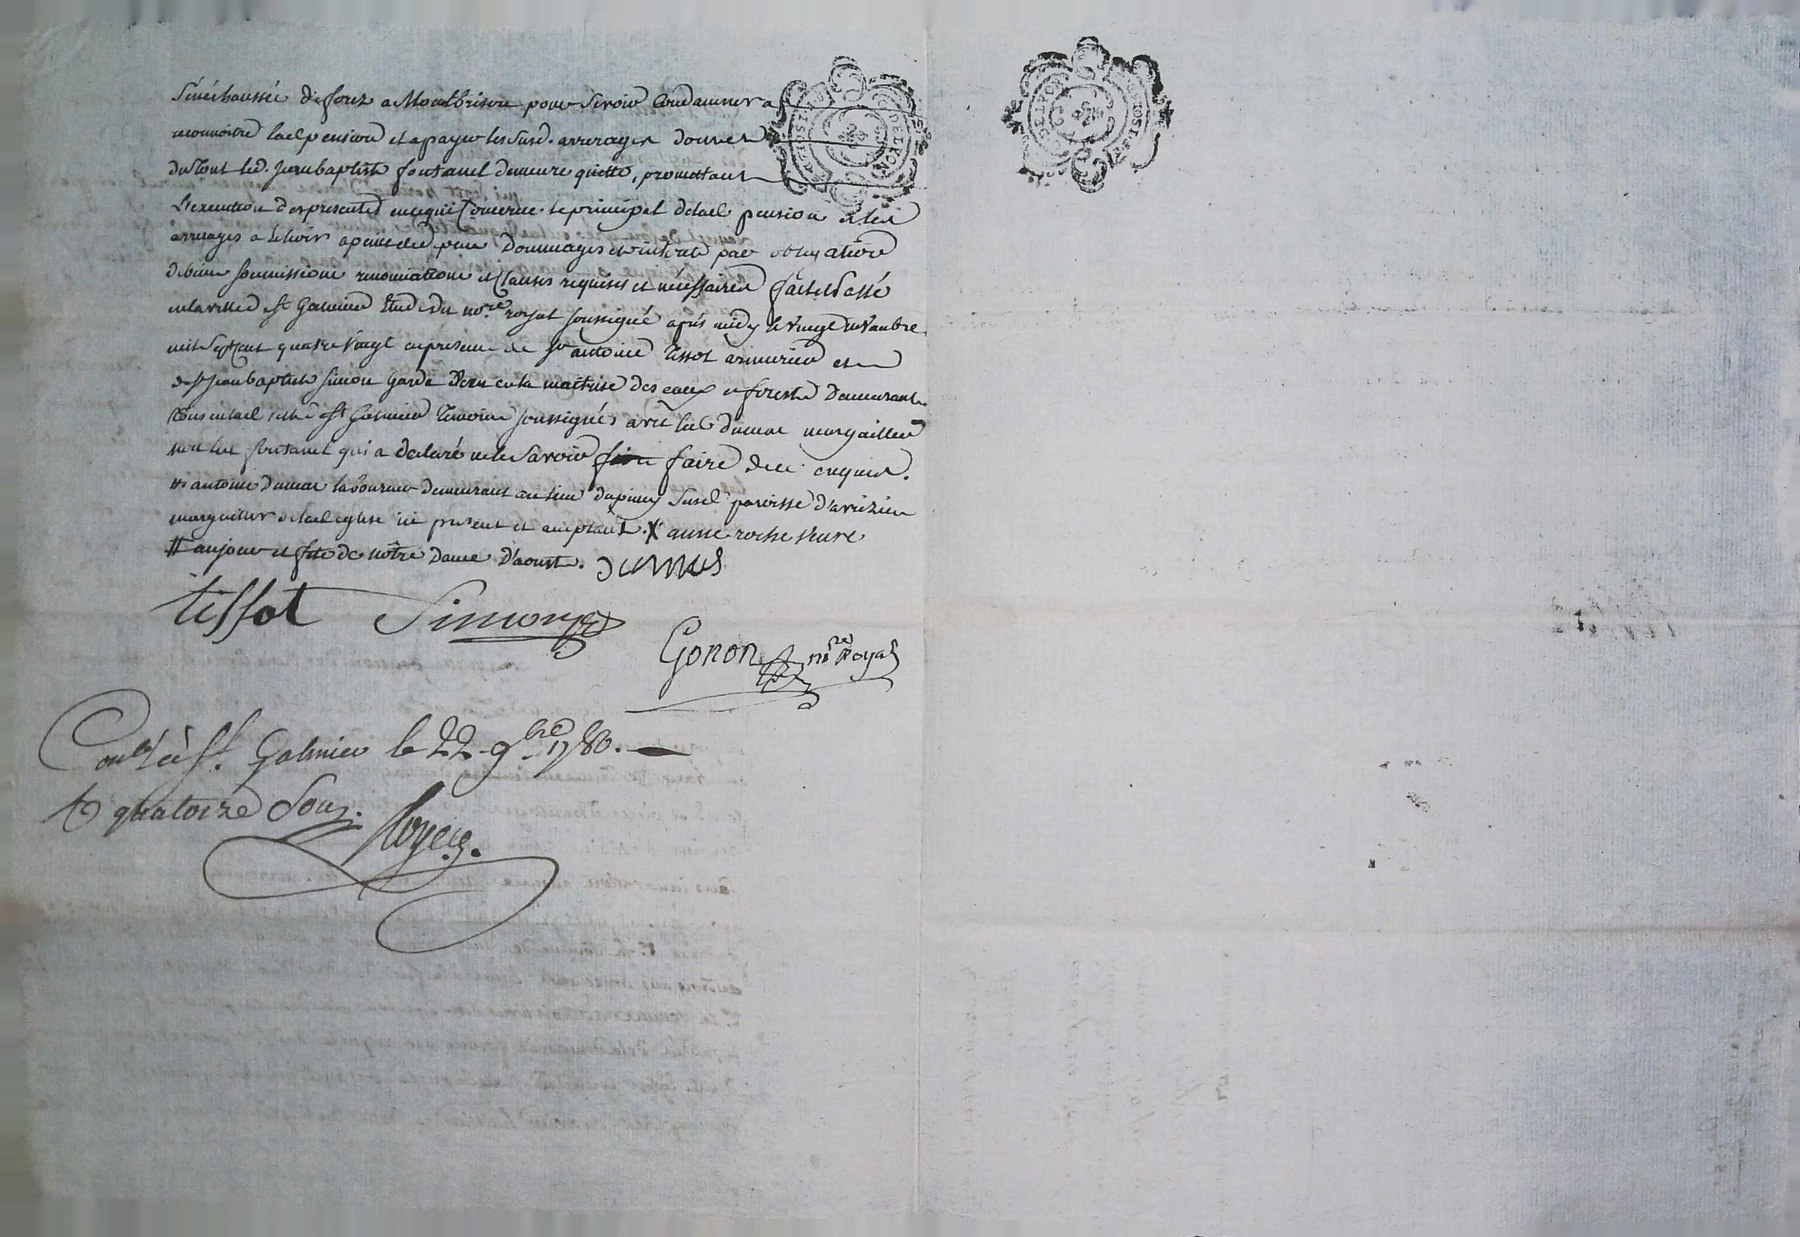 Sénéchaussée de forez a Montbrison pour se voir Condamner a
reconnoitre lad. pension et apayer les susd. arrerages
du tout led. jean baptiste fontanel demeure quitte, promettant
L'execution des presentes en ce qui Concerne le principal de lad. pension et les
arrerages a echoir a peine de tous dommages et interets par obligation
de biens soumissions renonciations et Clauses requises et nécessaires fait et Passé
en la ville de st Galmier Etude du no.re royal soussigné après midy le vingt novembre
mil sept cent quatre vingt en presence de sr antoine tissot armurier et
de sr jean baptiste simon Garde en la maitrise des eaux et forests Demeurants
tous en lad. ville de st Galmier temoins soussignés avec led. Dumas marguillier
non led. fontanel qui a declaré ne le savoir faire de ce enquis.
# antoine Dumas laboureur demeurant au lieu susd. paroisse
marguillier de lad. eglise ici present et acceptant. X anne roche veuve
# au jour et fete de nôtre dame D'aoust. Dumas
tissot Simon
Gonon no.re Royal
Con.lé à St. Galmier le 22 9bre 1780.
R quatorze Sous.
GENER DE LYON
DE LYON